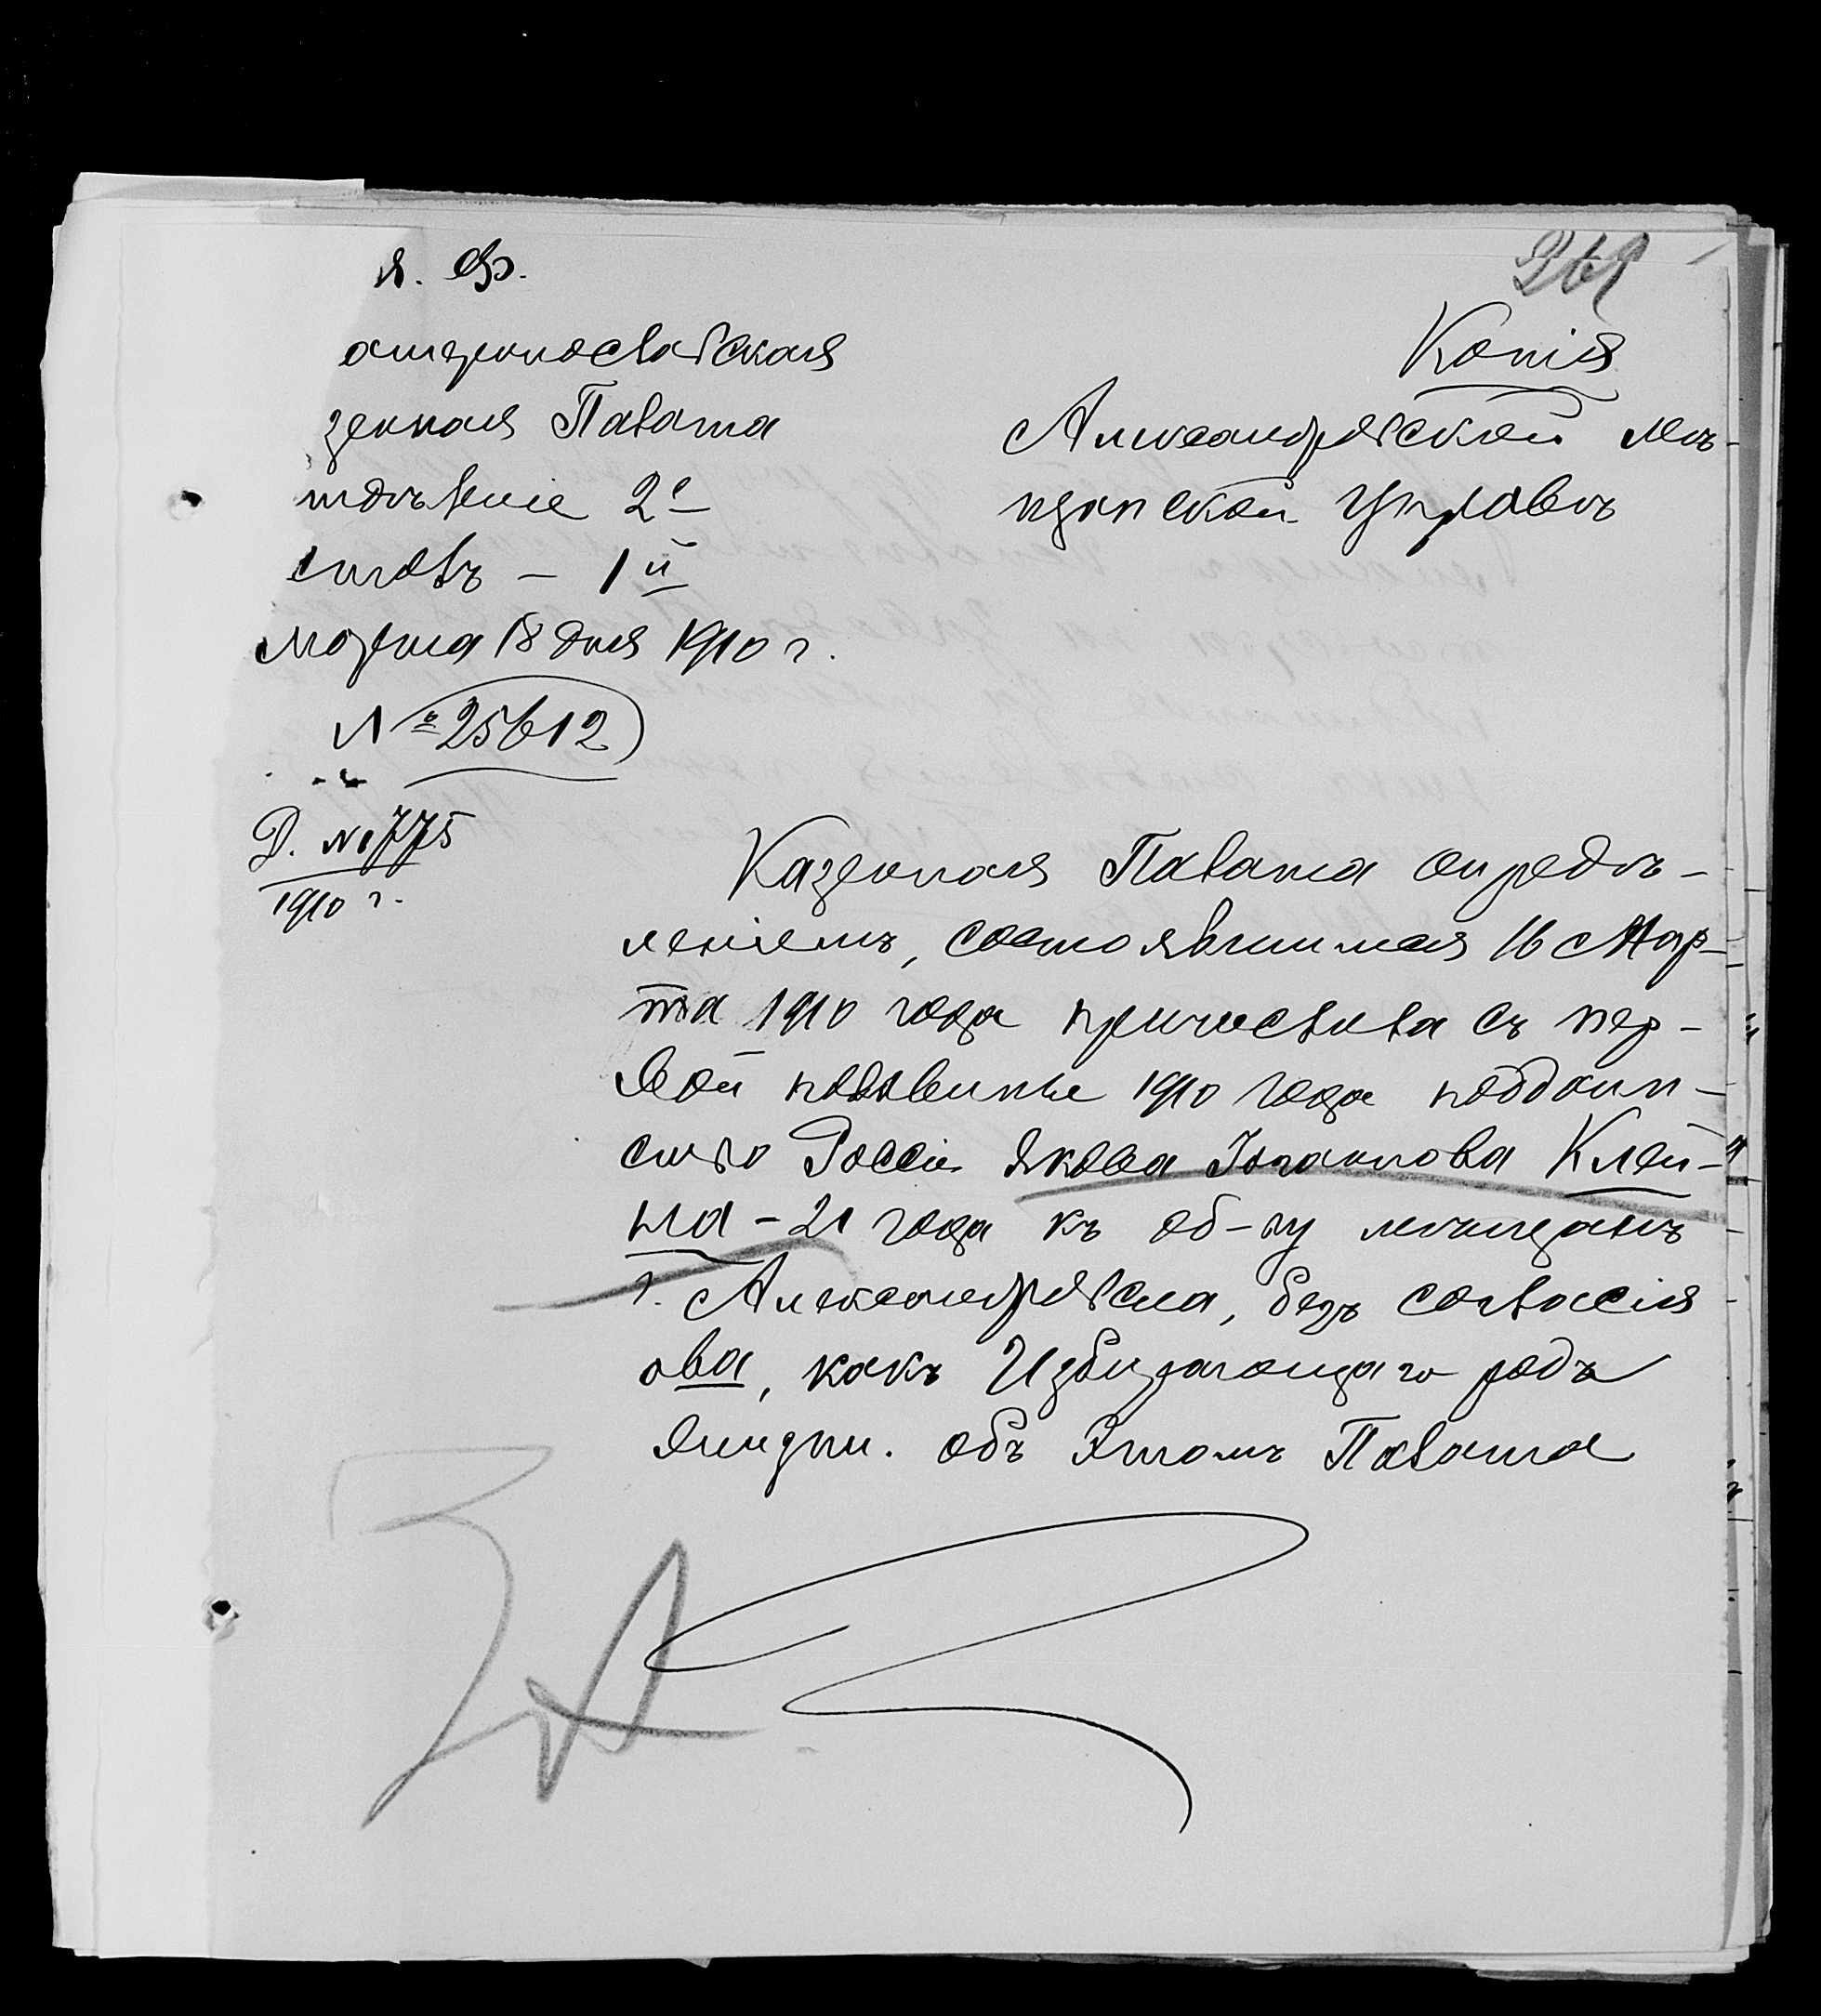 М. Ф.
269
атеринославская
зенная Палата
тдѣленіе 2е
столъ – 1й
Марта 18 дня 1910 г.
№ 25612
Д. № 775
1910 г.
Копія
Александровской мѣ-
щанской Управѣ
Казенная Палата опредѣ-
леніемъ, состоявшимся 16 Мар-
та 1910 года причислила съ пер-
вой половины 1910 года подданн-
ство Россіи Якова Іоганнова Клей-
на – 21 года къ об-ву мѣщанъ
г. Александровска, безъ согласія
ова, какъ Избирающаго родъ
жизни. Объ Этомъ Палата